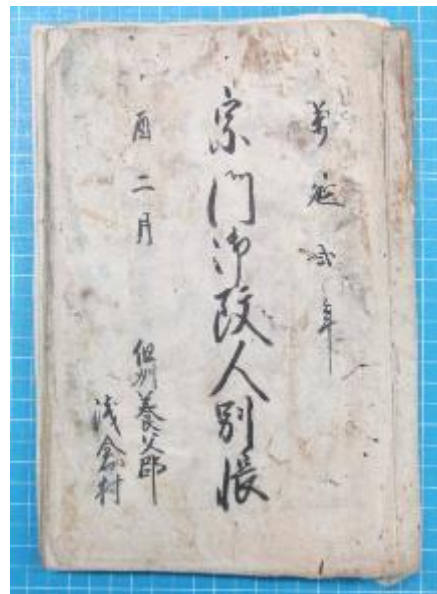 萬延弐年
宗門御改人別帳
酉二月
但州養父郡
浅倉村